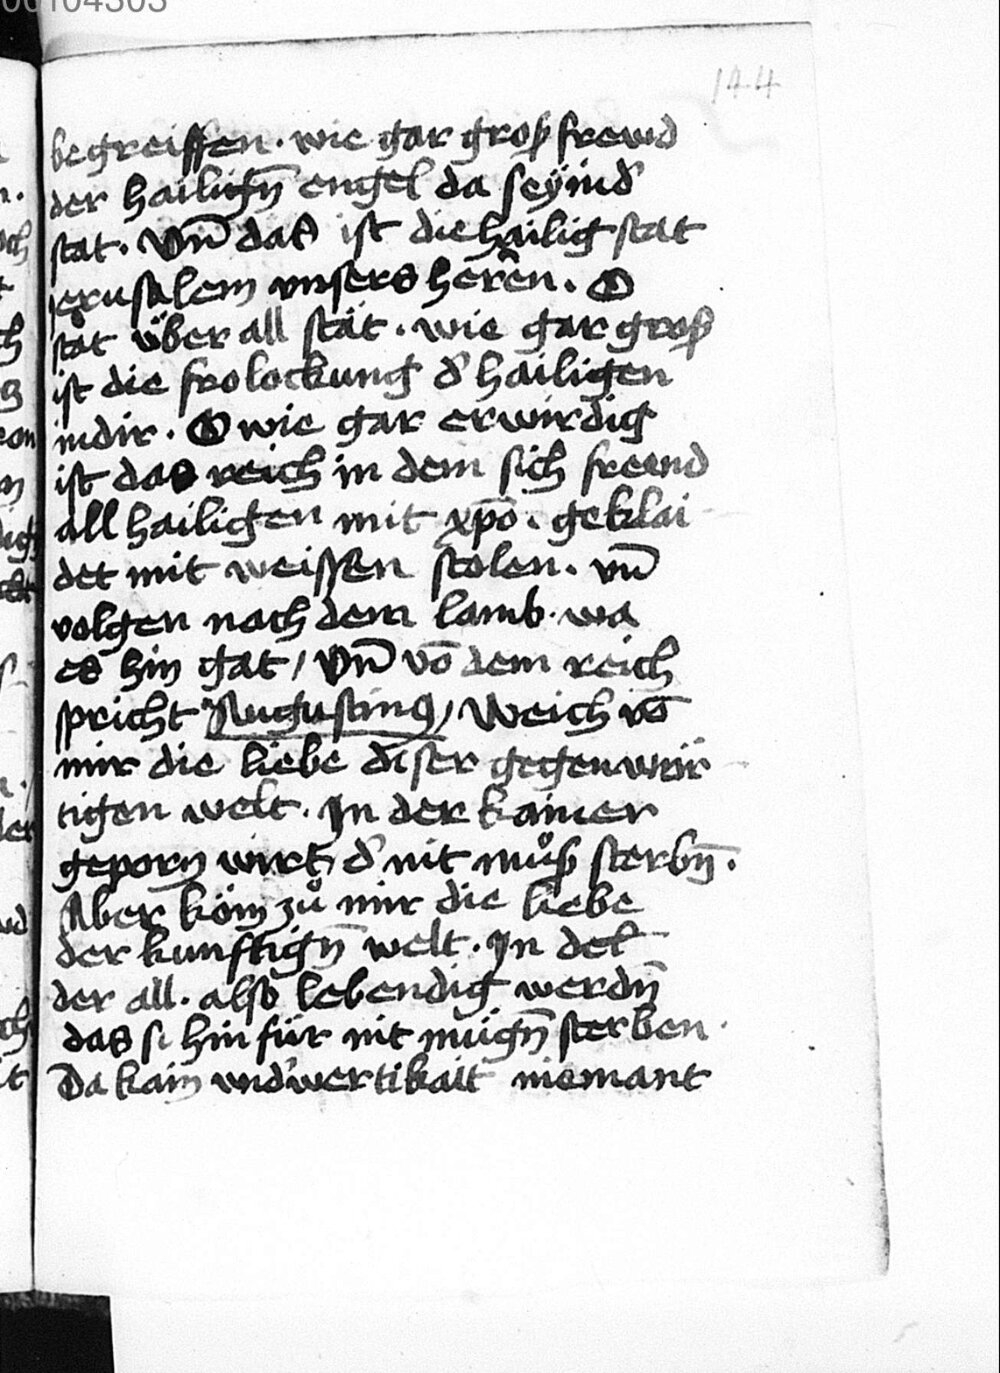 144
begreiffen. wie gar groß frewd
der hailign̄ engel da seÿ ind'
stat. Vn̄ das ist die hailig stat
jerusalem vnsers herên. O
stat über all stät. wie gar groß
ist die frolockung d' hailigen
indir. O wie gar erwirdig
ist das reich in dem sich frewnd
all hailigen mit xp̄o. geklai
det mit weissen stolen. vn̄
volgen nach dem lamb. wa
es hin gat / Vn̄ vō dem reich
spricht Augustinus / Weich vō
mir die liebe diser gegenwür
tigen welt. In der kainer
geporn wirt d' nit muͦß sterbn̄.
Aber köm zuͦ mir die liebe
der kunftign̄ welt. In der
der all. also lebendig werdn̄
das si hinfür nit mügn̄ sterben.
Da kain wid'wertikait niemant